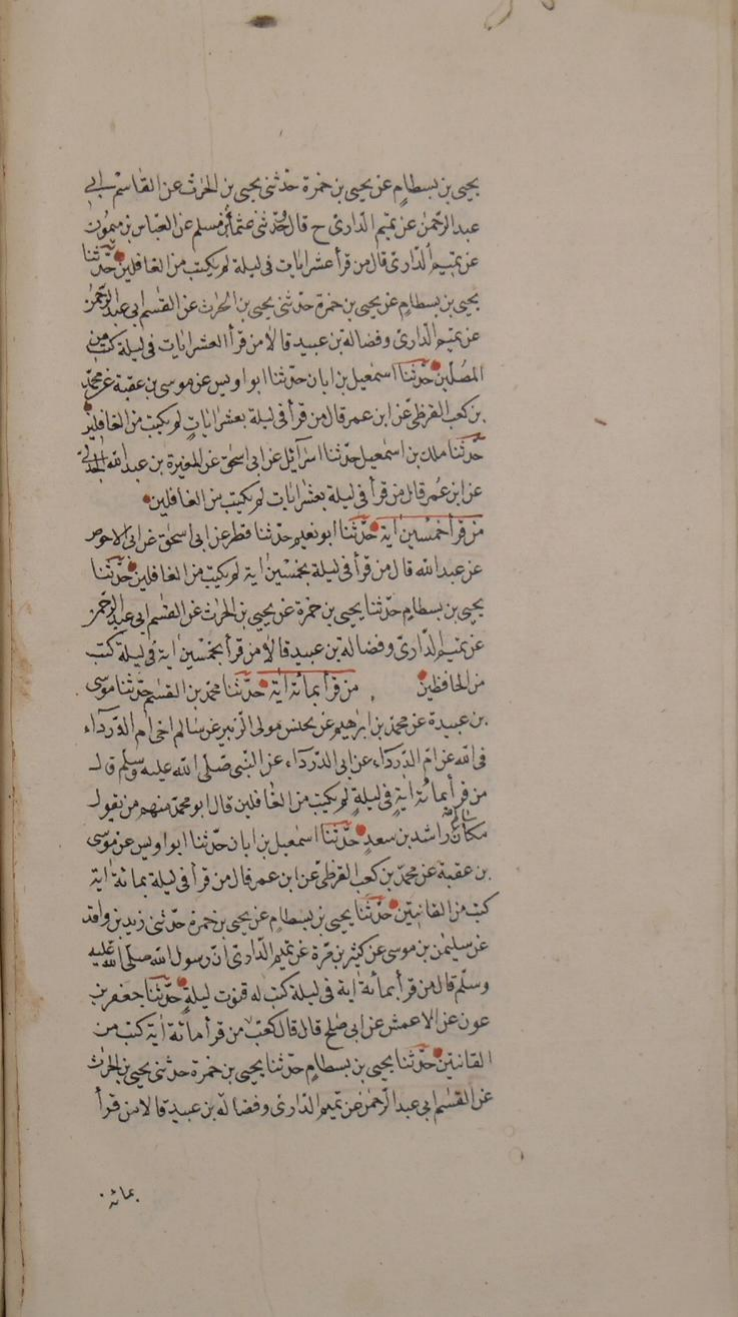 يحيى بن بسطام عن يحيى بن حمزة حدثنى يحيى بن الحرث عن القاسم ابى
عبد الرحمن عن تميم الدارى ح قال حدثنى عثمان بن مسلم عن العباس بن ميمون
عن تميم الدارى قال من قرأ عشر ايات فى ليلة لم يكتب من الغافلين حدثنا
يحيى بن بسطام عن يحيى بن حمزة حدثنى يحيى بن الحرث عن القسم ابى عبد الرحمن
عن تميم الدارى وفضالة بن عبيد قالا من قرأ العشر ايات فى ليلة كتب من
المصلين حدثنا اسمعيل بن ابان حدثنا ابو اويس عن موسى بن عقبة عن محمد
بن كعب القرظى عن ابن عمر قال من قرأ فى ليلة بعشر ايات لم يكتب من الغافلين
حدثنا ملك بن اسمعيل حدثنا اسرآئل عن ابى اسحق عن المغيرة بن عبد الله الجدلى
عن ابن عمر قال من قرأ فى ليلة بعشر ايات لم يكتب من الغافلين
من قرأ خمسين اية حدثنا ابو نعيم حدثنا فطر عن ابى اسحق عن ابى الاحوص
عن عبد الله قال من قرأ فى ليلة بخمسين اية لم يكتب من الغافلين حدثنا
يحيى بن بسطام حدثنا يحيى بن حمزة عن يحيى بن الحرث عن القسم ابى عبد الرحمن
عن تميم الدارى وفضالة بن عبيد قالا من قرأ بخمسين اية فى ليلة كتب
من الحافظين من قرأ بمائة اية حدثنا محمد بن القسم حدثنا موسى
بن عبيدة عن محمد بن ابرهيم عن يحنس مولى الزبير عن سالم اخى ام الدردآء
فى الله عن ام الدردآء عن ابى الدردآء عن النبى صلى الله عليه وسلم قال
من قرأ بمائة اية فى ليلة لم يكتب من الغافلين قال ابو محمد منهم من يقول
مكان سالم راشد بن سعد حدثنا اسمعيل بن ابان حدثنا ابو اويس عن موسى
بن عقبة عن محمد بن كعب القرظى عن ابن عمر قال من قرأ فى ليلة بمائة اية
كتب من القانتين حدثنا يحيى بن بسطام عن يحيى بن حمزة حدثنى زيد بن واقد
عن سليمن بن موسى عن كثير بن مرة عن تميم الدارى ان رسول الله صلى الله عليه
وسلم قال من قرأ بمائة اية فى ليلة كتب له قنوت ليلة حدثنا جعفر بن
عون عن الاعمش عن ابى صلح قال قال كعب من قرأ مائة اية كتب من
القانتين حدثنا يحيى بن بسطام حدثنا يحيى بن حمزة حدثنى يحيى بن الحرث
عن القسم ابى عبد الرحمن عن تميم الدارى وفضالة بن عبيد قالا من قرأ
بمائة